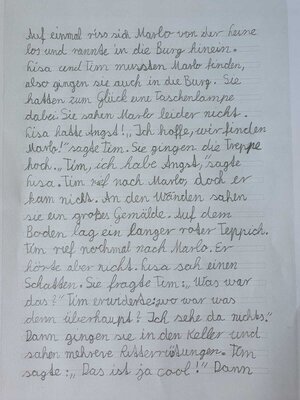 Auf einmal riss sich Marlo von der Leine
los und rannte in die Burg hinein.
Lisa und Tim mussten Marlo finden,
also gingen sie auch in die Burg. Sie
hatten zum Glück eine Taschenlampe
dabei Sie sahen Marlo leider nicht.
Lisa hatte Angst! „Ich hoffe, wir finden
Marlo!" sagte Tim. Sie gingen die Treppe
hoch. „Tim, ich habe Angst," sagte
Lisa. Tim rief nach Marlo, doch er
kam nicht. An den Wänden sahen
sie ein großes Gemälde. Auf dem
Boden lag ein langer roter Teppich.
Tim rief nochmal nach Marlo. Er
hörte aber nicht. Lisa sah einen
Schatten. Sie fragte Tim: „Was war
das?" Tim erwiderte: wo war was
denn überhaupt? Ich sehe da nichts."
Dann gingen sie in den Keller und
sahen mehrere Ritterrüstungen. Tim
sagte: „Das ist ja cool!" Dann